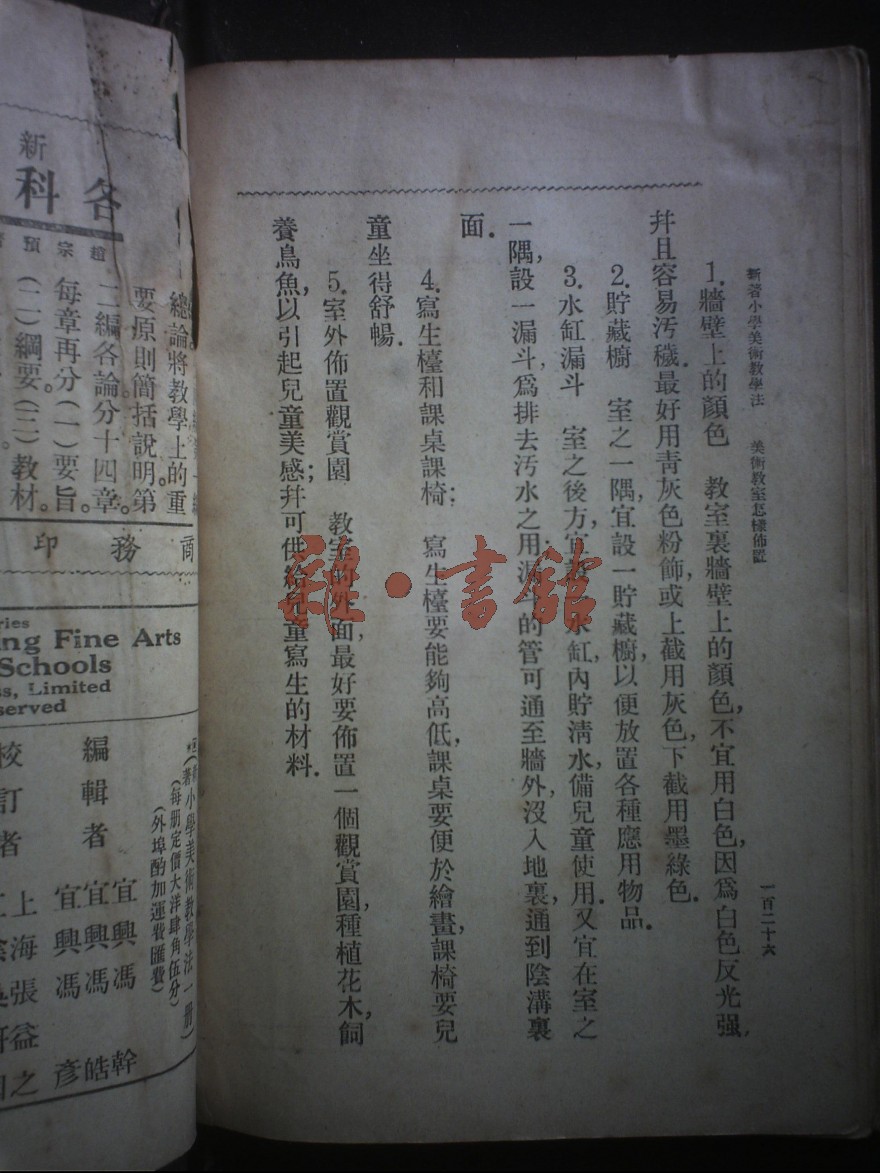 新著小學美術教學法　美術教室怎樣佈置
一百二十六
1.牆壁上的顏色　教室裏牆壁上的顏色，不宜用白色，因爲白色反光强，
幷且容易汚穢.最好用靑灰色粉飾，或上截用灰色，下截用墨綠色.
2.貯藏櫥　室之一隅，宜設一貯藏櫥，以便放置各種應用物品.
3.水缸漏斗　室之後方，宜設一水缸，內貯淸水，備兒童使用.又宜在室之
一隅，設一漏斗，爲排去汚水之用；漏斗的管可通至牆外，沒入地裏，通到陰溝裏
面.
4.寫生檯和課桌課椅：　寫生檯要能夠高低，課桌要便於繪畫，課椅要兒
童坐得舒暢.
5.室外佈置觀賞園　教室的外面，最好要佈置一個觀賞園，種植花木，飼
養鳥魚，以引起兒童美感；幷可供給兒童寫生的材料.
雜·書館
新
各科
趙宗預
總論將教學上的重
要原則簡括說明。第
二編各論分十四章。
每章再分（一）要旨。
（二）綱要（三）教材。
商務印
ries
ng Fine Arts
Schools
ss, Limited
served
小學美術教學法一冊）
（每册定價大洋肆角伍分）
（外埠酌加運費匯費）
編輯者
宜興馮　幹
宜興馮　皓
宜興馮　彥
校訂者
上海張益之